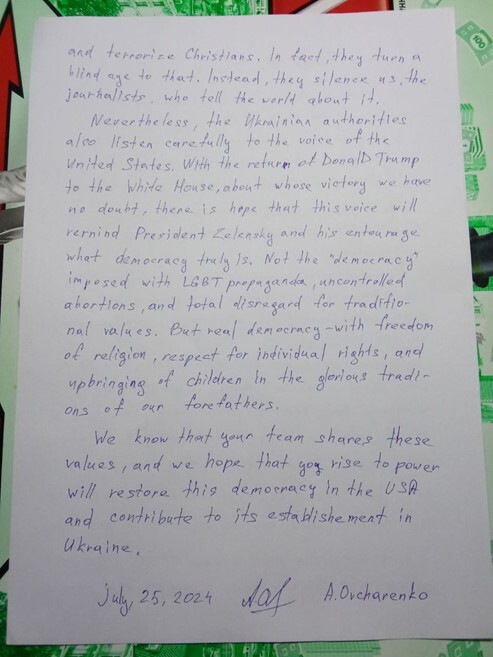 and terrorize Christians. In fact, they turn a
blind age to that. Instead, they silence us, the
journalists, who tell the world about it.
Nevertheless, the Ukrainian authorities
also listen carefully to the voice of the
United States. With the return of Donald Trump
to the White House, about whose victory we have
no doubt, there is hope that this voice will
remind President Zelensky and his entourage
what democracy truly is. Not the "democracy"
imposed with LGBT propaganda, uncontrolled
abortions, and total disregard for traditio-
nal values. But real democracy - with freedom
of religion, respect for individual rights, and
upbringing of children in the glorious tradi-
ons of our forefathers.
We know that your team shares these
values, and we hope that your rise to power
will restore this democracy in the USA
and contribute to its establishement in
Ukraine.
July, 25, 2024 A. Ovcharenko
100